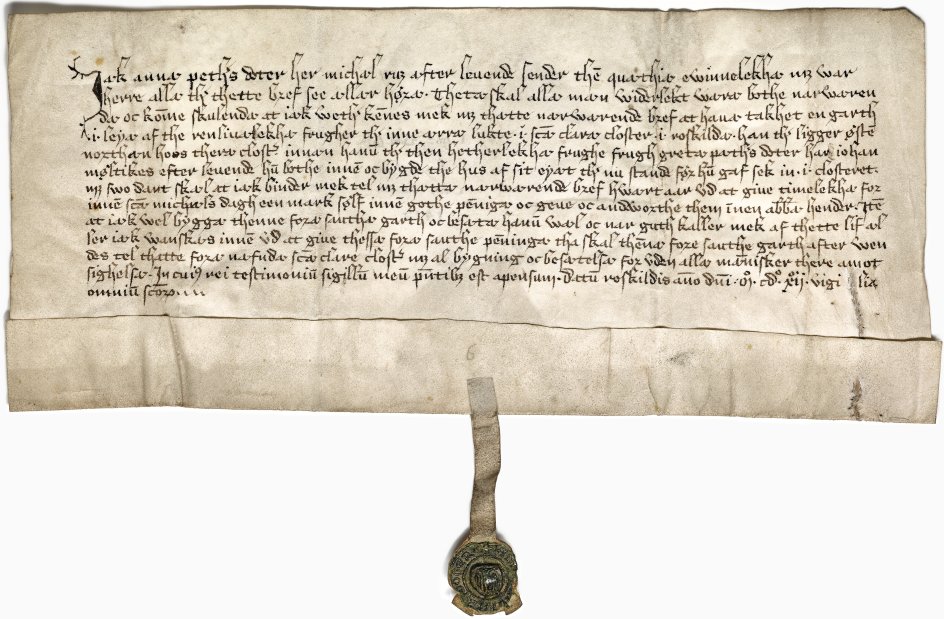 Jak anna peth's doter her michal ruz after leuende sender thē quæthiæ ewinnelekhæ mz war
herre allæ thr thette bref see æller høræ. Thetæ skal allæ mæn widerlekt waræ bothe nærwæren
dæ oc kōme skulendæ at iæk weth kēnes mek mz thættæ nærwærende bref at hauæ takhet en garth
.i. leyæ af the renliuælekhæ frugher thr inne ærræ lukte .i. scā clara closter .i. roskildæ. han thr ligger østē
northan hoos theræ clost' innan hauū thr then hetherlekhæ frughe frugh gretæ pæth's doter hær iohan
møltikes efter leuende hū bothe innē oc bygde the hus af sit eyæt thr nu stande for hū gaf sek in .i. closteret.
mz swo dant skal at iak binder mek tel mz thættæ nærwærende bref hwart aar vd at giue timelekhæ for
innēn scā michæls dagh een mark sølf innēn gothe pēnigæ oc geue oc andworthe them īnen abbæ hender. Itē
at iæk wel bygge thenne foræ sauthæ garth oc besætæ hanū wæl oc nar guth kaller mek af thette lif æl
ler iæk wanskæs innēn vd at giue thessæ foræ sauthe peningæ tha skal thēnæ fore sauthe garth after wen
des tel thætte foræ næfndæ scā clare clost' mz al bygning oc besætelsæ for vden allæ mænisker there amot
sighelsæ. In cui9 rei testimoniū sigillū meū pn̄tib3 est apensum. datū roskildis anno dn̄i. m. cd. xii. vigi lia
omniū sctor̄.
6